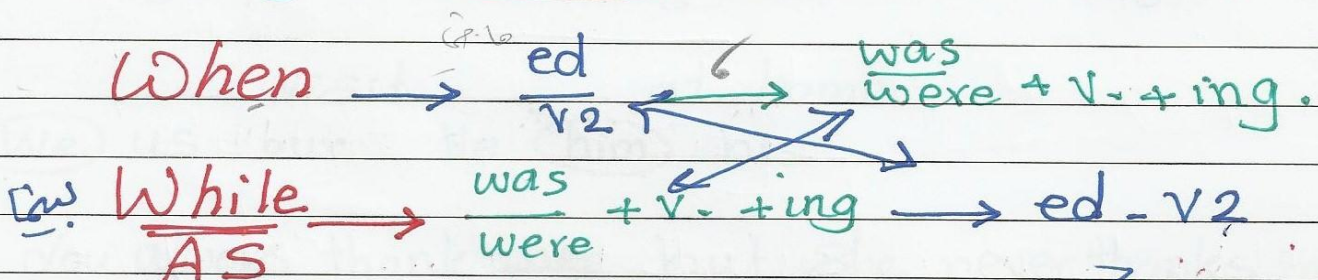 When → ed/V2 ↔ , was/were + V. + ing.
While/AS → was/were + V. + ing → ed - V2